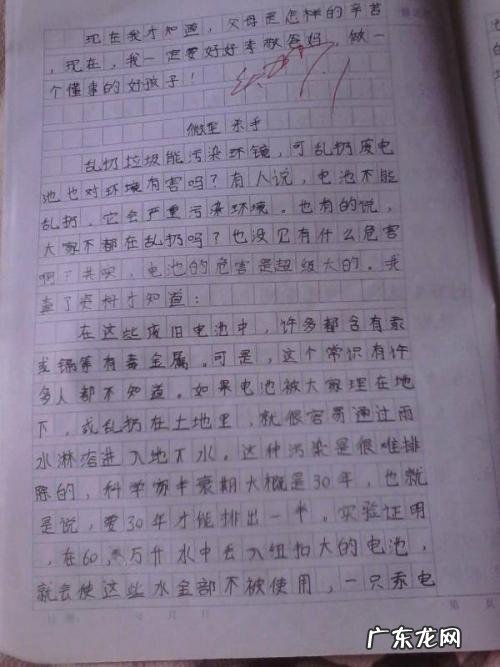 现在我才知道，父母是怎样的辛苦
，现在，我一定要好好孝敬爸妈，做一
个懂事的好孩子！
微型 杀手
乱扔垃圾能污染环镜，可乱扔废电
池也对环境有害吗？有人说，电池不能
乱扔。它会严重污染环境。也有的说，
大家不都在乱扔吗？也没见有什么危害
啊？其实，电池的危害是超级大的。我
查了资料才知道：
在这些废旧电池中，许多都含有汞
或镉等有毒金属。可是，这个常识有许
多人都不知道。如果电池被大家埋在地
下，或乱扔在土地里，就很容易通过雨
水淋溶进入地下水。这种污染是很难排
除的，科学家半衰期大概是30年，也就
是说，要30年才能排出一半。实验证明
，在60万升水中丢入纽扣大的电池，
就会使这些水全部不被使用，一只汞电
第 页
广东龙网